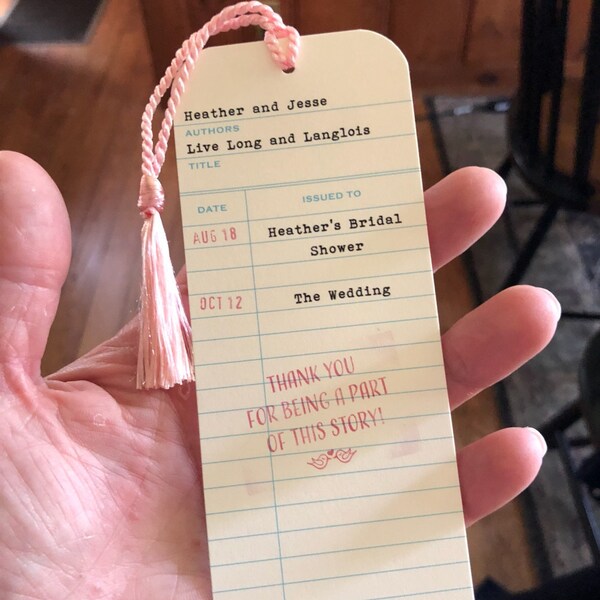 Heather and Jesse
AUTHORS
Live Long and Langlois
TITLE
DATE ISSUED TO
AUG 18 Heather's Bridal
Shower
OCT 12 The Wedding
THANK YOU
FOR BEING A PART
OF THIS STORY!